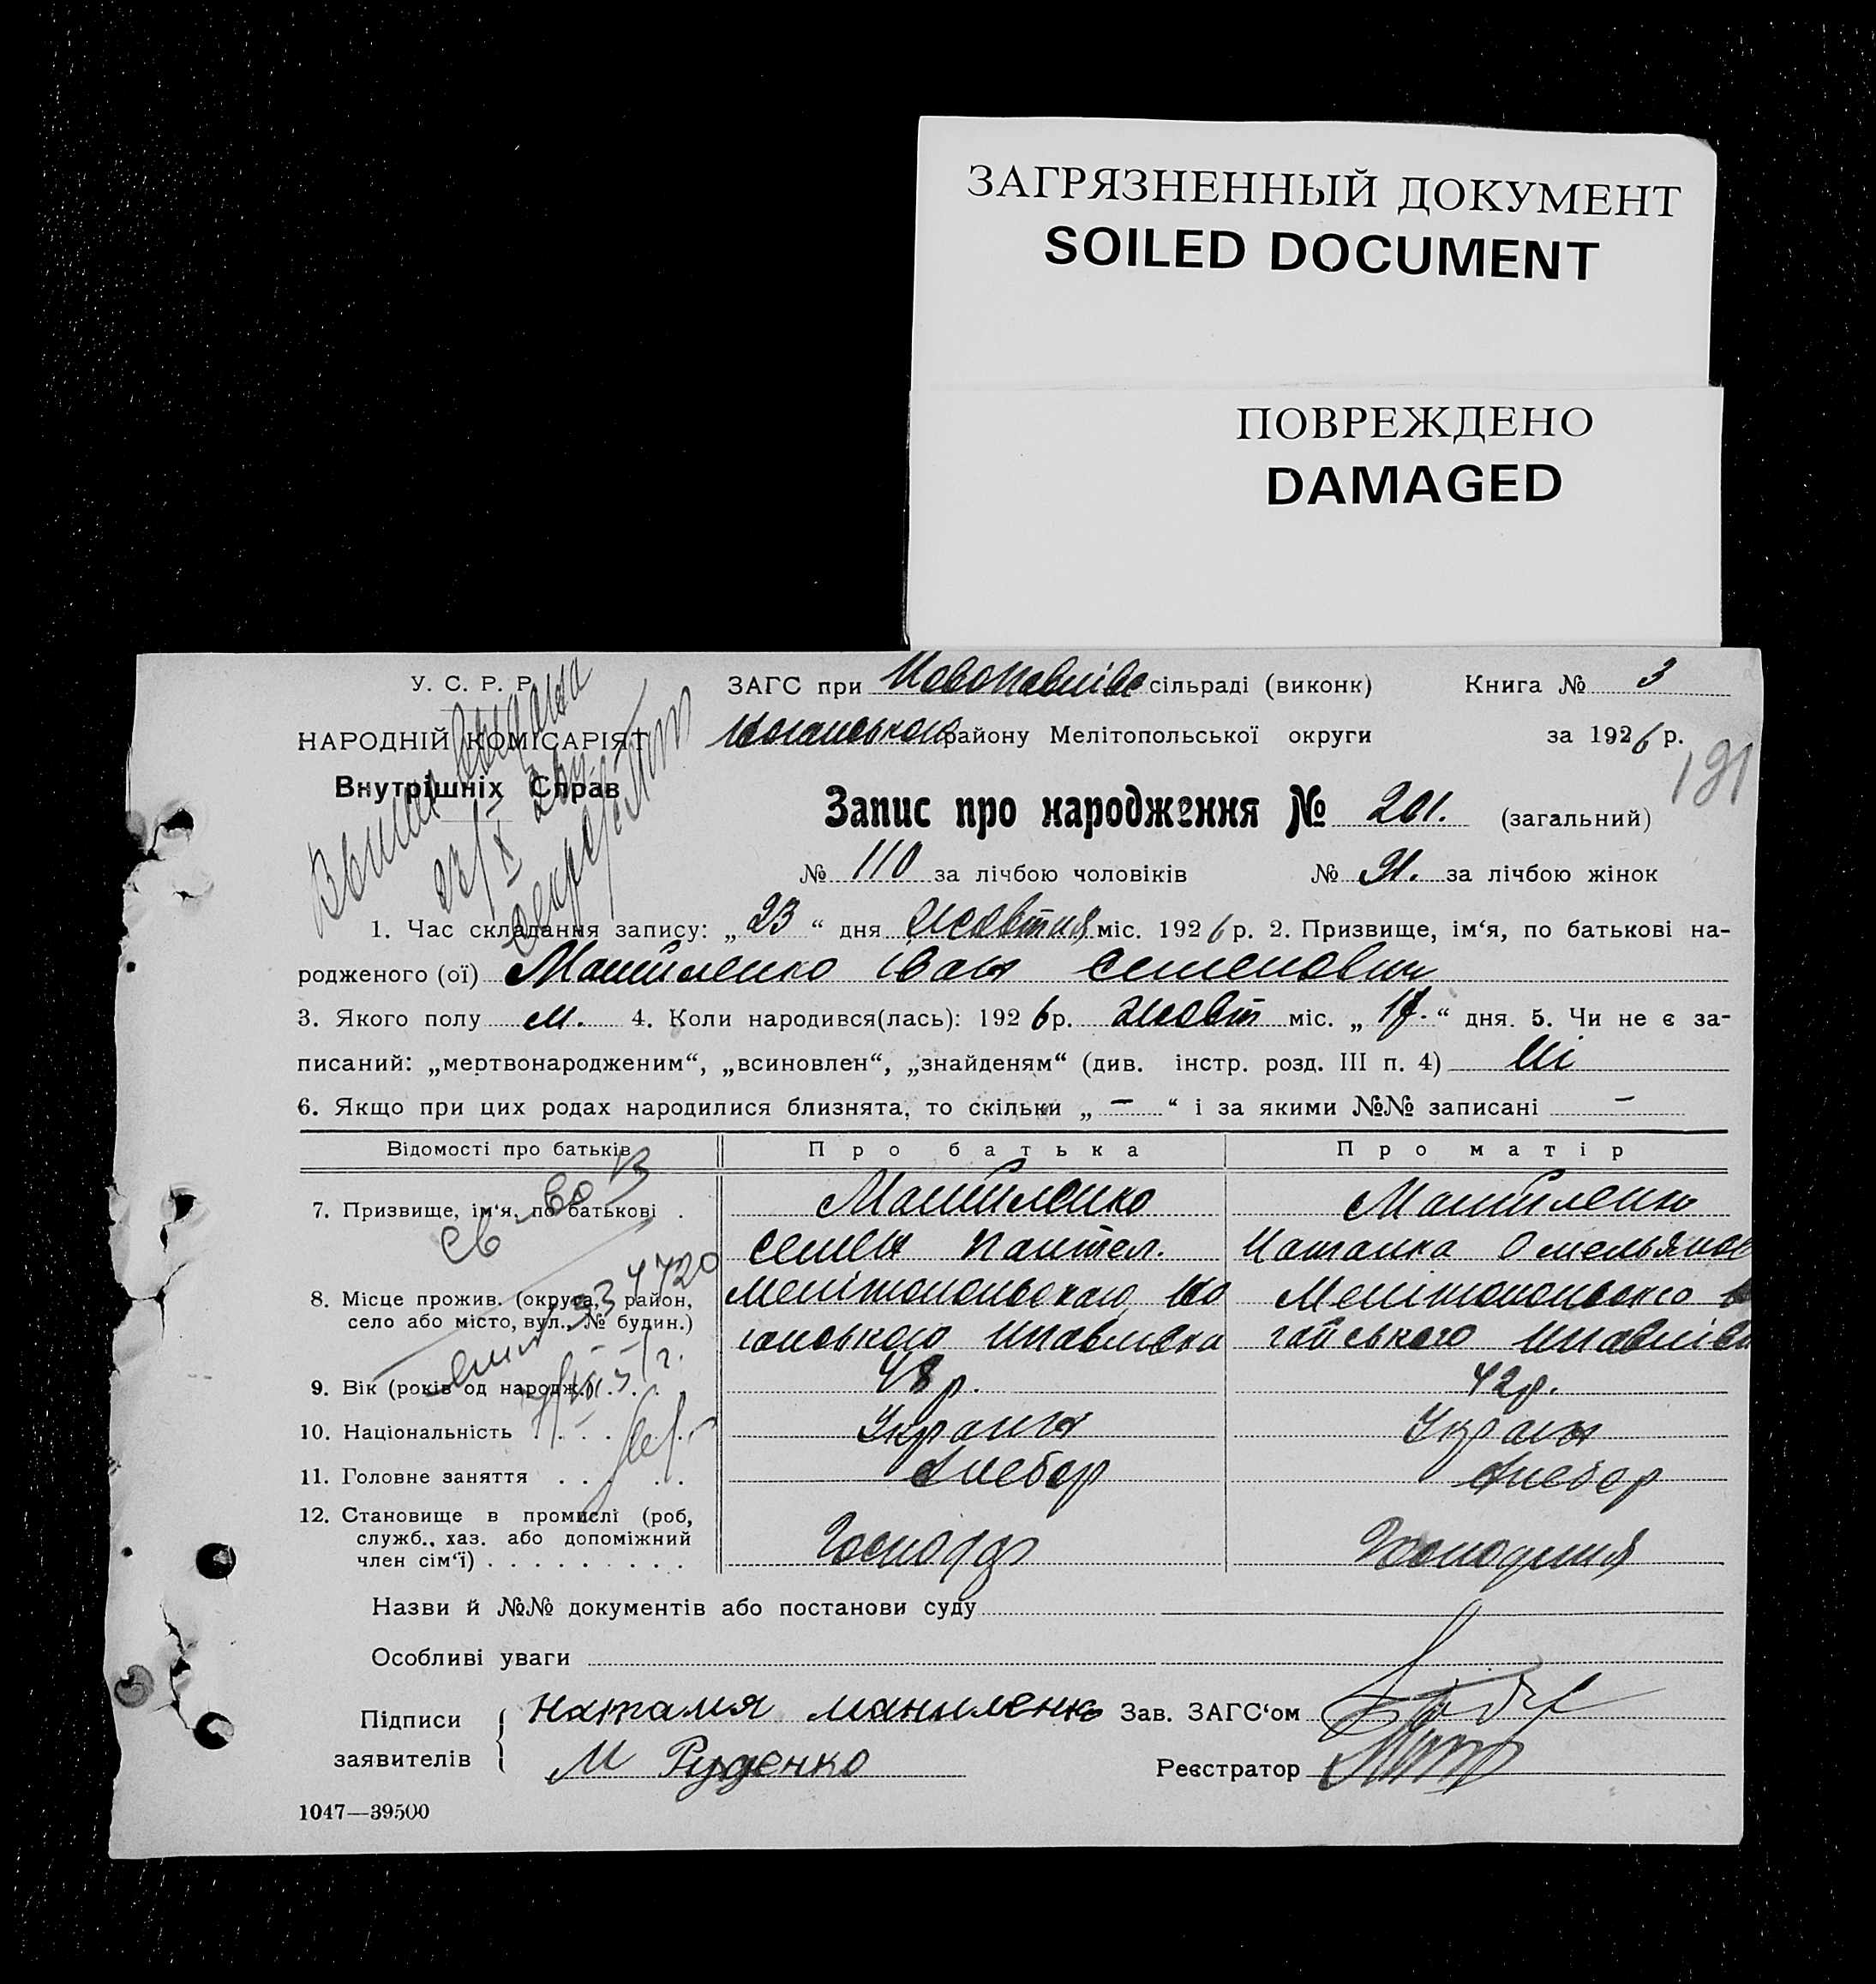 ЗАГРЯЗНЕННЫЙ ДОКУМЕНТ
SOILED DOCUMENT
ПОВРЕЖДЕНО
DAMAGED
У. С. Р. Р.
НАРОДНІЙ КОМІСАРІЯТ
Внутрішніх Справ
Выпись выдана
23/X 26 г.
ЗАГС при Новопавлівс сільраді (виконк) Книга № 3
району Мелітопольської округи за 1926 р.
191
Запис про народження № 201. (загальний)
№ 110 за лічбою чоловіків № 91. за лічбою жінок
1. Час складання запису: „23“ дня Жовтня міс. 1926 р. 2. Призвище, ім‘я, по батькові на-
родженого (ої) Манйленко Іван Семенович
3. Якого полу м. 4. Коли народився(лась): 1926 р. Жовт міс. „17.“ дня. 5. Чи не є за-
писаний: „мертвонародженим“, „всиновлен“, „знайденям“ (див. інстр. розд. III п. 4) Ні
6. Якщо при цих родах народилися близнята, то скільки „ — “ і за якими №№ записані —
Відомості про батьків Про батька Про матір
7. Призвище, ім‘я, по батькові . Манйленко Манйленко
Семен Пантел. Наталка Омельянов
8. Місце прожив. (округа, район,
село або місто, вул., № будин.)
Мелітопольского Мелітопольсксо
9. Вік (років од народж.) . . . 48 р. 42 р.
10. Національність . . . . . Украин Украин
11. Головне заняття . . . . . Хлебор Хлебор
12. Становище в промислі (роб,
служб., хаз. або допоміжний
член сім‘ї) . . . . . . . . . Господар Господиня
Назви й №№ документів або постанови суду
Особливі уваги
Підписи заявителів Наталия маниленко Зав. ЗАГС‘ом
М Руденко Реєстратор
1047—39500